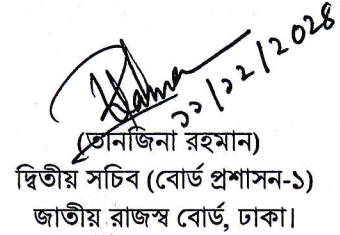 ১১/১২/২০২৪
(তানজিনা রহমান)
দ্বিতীয় সচিব (বোর্ড প্রশাসন-১)
জাতীয় রাজস্ব বোর্ড, ঢাকা।